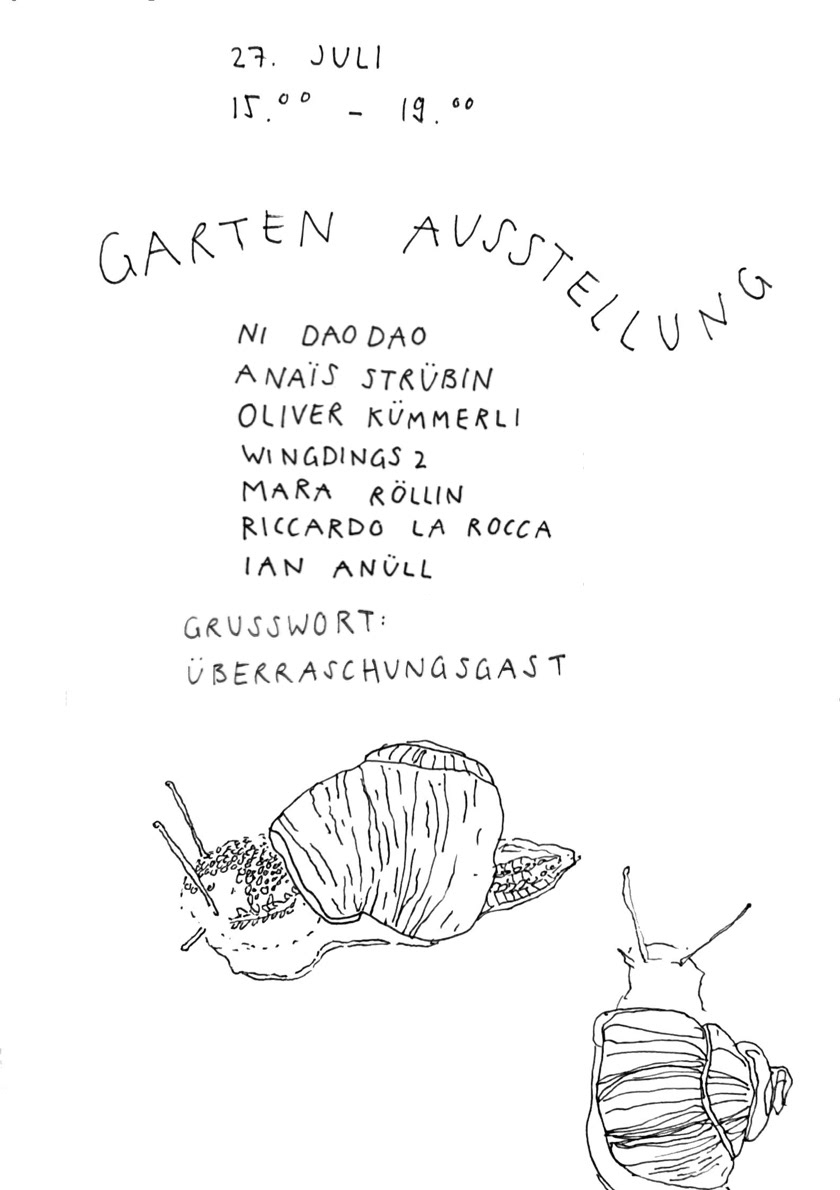 27. JULI
15.⁰⁰ – 19.⁰⁰
GARTEN AUSSTELLUNG
NI DAODAO
ANAÏS STRÜBIN
OLIVER KÜMMERLI
WINGDINGS 2
MARA RÖLLIN
RICCARDO LA ROCCA
IAN ANÜLL
GRUSSWORT:
ÜBERRASCHUNGSGAST